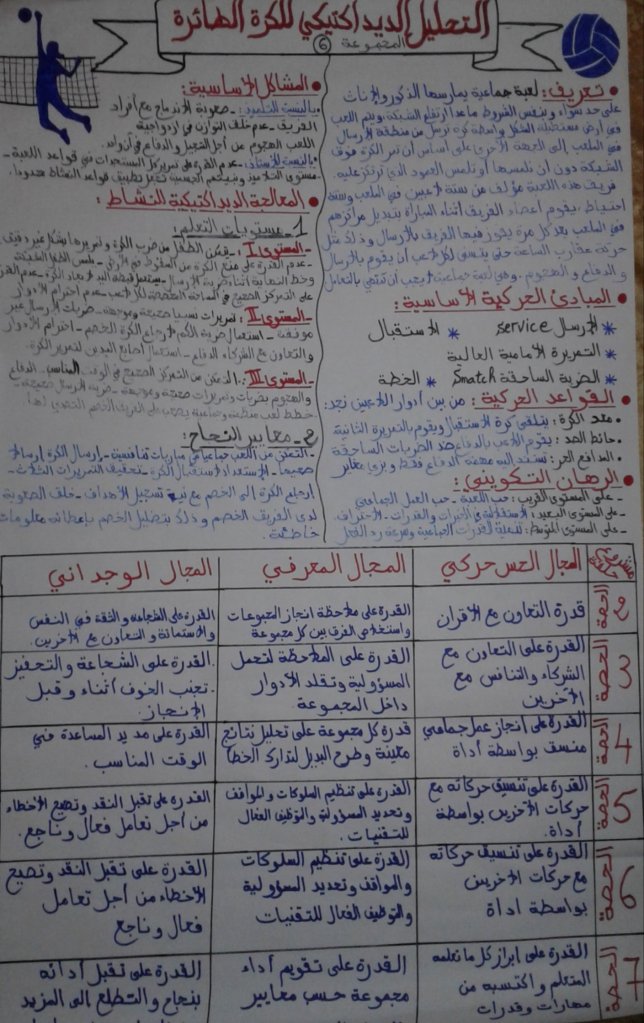 التحليل الديداكتيكي للكرة الطائرة
المجموعة 6
• تعريف: لعبة جماعية يمارسها الذكور والإناث
على حد سواء وبنفس الشروط ماعدا ارتفاع الشبكة ويتم اللعب
في أرض مستطيلة الشكل بواسطة كرة ترسل من منطقة الإرسال
في الملعب إلى الجهة الأخرى على أساس أن تمر الكرة فوق
الشبكة دون أن تلمسها أو تلمس العمود الذي ترتكز عليه
فريق هذه اللعبة مؤلف من ستة لاعبين في الملعب وستة
احتياط، يقوم أعضاء الفريق أثناء المباراة بتبديل مراكزهم
في الملعب بعد كل مرة يفوز فيها الفريق بالإرسال وذلك مثل
حركة عقارب الساعة حتى يتسنى لكل لاعب أن يقوم بالإرسال
والدفاع والهجوم. وهي لعبة جماعية لا يجب أن تنتهي بالتعادل
• المبادئ الحركية الأساسية:
* الإرسال service * الاستقبال
* التمريرة الأمامية العالية
* الضربة الساحقة Smatch * الخطة
• القواعد الحركية: من بين أدوار اللاعبين نجد:
- معد الكرة: يتلقى كرة الاستقبال ويقوم بالتمريرة الثانية
- حائط الصد: يقوم اللاعب بالدفاع ضد الضربات الساحقة
- المدافع الحر: تستند إليه مهمة الدفاع فقط وبزي مغاير
• الرهان التكويني:
- على المستوى القريب: حب اللعبة - حب العمل الجماعي
- على المستوى البعيد: الاستقلالية في الخبرات والقدرات - الاحتراف.
- على المستوى المتوسط: تنمية القدرات الجماعية وسرعة رد الفعل
• المشاكل الأساسية:
- بالنسبة للتلميذ: - صعوبة الاندماج مع أفراد
الفريق - عدم خلف التوازن في ازدواجية
اللعب الهجوم من أجل التسجيل والدفاع في آن واحد.
- بالنسبة للأستاذ: - عدم القدرة على تمرير كل المستجدات في قواعد اللعبة -
مستوى التلاميذ وبنيتهم الجسمية تجعل تطبيق قواعد النشاط محدودا.
• المعالجة الديداكتيكية للنشاط:
1 - مستويات التعلم:
- المستوى I: - يتمكن الطفل من ضرب الكرة وتمريرها بشكل غير دقيق
- عدم القدرة على منع الكرة من السقوط في الأرض - يلمس الطفل الشبكة
وخط النهاية أثناء ضربة الإرسال - يستعمل قبضة اليد لإبعاد الكرة - عدم القدرة
على التمركز الصحيح في المساحة المخصصة لكل لاعب - عدم احترام الأدوار
- المستوى II: تمريرات نسبيا صحيحة وموجهة - ضربات الإرسال غير
موفقة - استعمال ضربة الكم لإرجاع الكرة للخصم - احترام الأدوار
والتعاون مع الشركاء الدفاع - استعمال أصابع اليدين لتمرير الكرة.
- المستوى III: - التمكن من التمركز الصحيح في الوقت المناسب - الدفاع
والهجوم بضربات وتمريرات صحيحة وموجهة - ضربة الإرسال صحيحة -
خطط لعب منظمة وجماعية يصعب على الفريق الخصم التصدي لها
2 - معايير النجاح:
- التمكن من اللعب جماعيا في مباريات تنافسية - إرسال الكرة إرسالا
صحيحا - الاستعداد لاستقبال الكرة - تحقيق التمريرات الثلاث -
إرجاع الكرة إلى الخصم مع نية تسجيل الأهداف - خلق الصعوبة
لدى الفريق الخصم وذلك بتضليل الخصم بإعطائه معلومات
خاطئة.
المجال الحس حركي
المجال المعرفي
المجال الوجداني
الحصة 2
قدرة التعاون مع الأقران
القدرة على ملاحظة إنجاز المجموعات
واستخلاص الفرق بين كل مجموعة
القدرة على الشجاعة والثقة في النفس
والاستماتة والتعاون مع الآخرين.
الحصة 3
القدرة على التعاون مع
الشركاء والتنافس مع
الآخرين
القدرة على الملاحظة لتحمل
المسؤولية وتقلد الأدوار
داخل المجموعة
القدرة على الشجاعة والتحفيز
. تجنب الخوف أثناء وقبل
الإنجاز.
الحصة 4
القدرة على إنجاز عمل جماعي
منسق بواسطة أداة
قدرة كل مجموعة على تحليل نتائج
معينة وطرح البديل لتدارك الخطأ
القدرة على مد يد المساعدة في
الوقت المناسب.
الحصة 5
القدرة على تنسيق حركاته مع
حركات الآخرين بواسطة
أداة.
القدرة على تنظيم السلوكات والمواقف
وتحديد المسؤولية والتوظيف الفعال
للتقنيات.
القدرة على تقبل النقد وتصحيح الأخطاء
من أجل تعامل فعال وناجع.
الحصة 6
القدرة على تنسيق حركاته
مع حركات الآخرين
بواسطة أداة
القدرة على تنظيم السلوكات
والمواقف وتحديد المسؤولية
والتوظيف الفعال للتقنيات
القدرة على تقبل النقد وتصحيح
الأخطاء من أجل تعامل
فعال وناجع
الحصة 7
القدرة على إبراز كل ما تعلمه
المتعلم واكتسبه من
مهارات وقدرات
القدرة على تقويم أداء
مجموعة حسب معايير
القدرة على تقبل أدائه
بنجاح والتطلع إلى المزيد